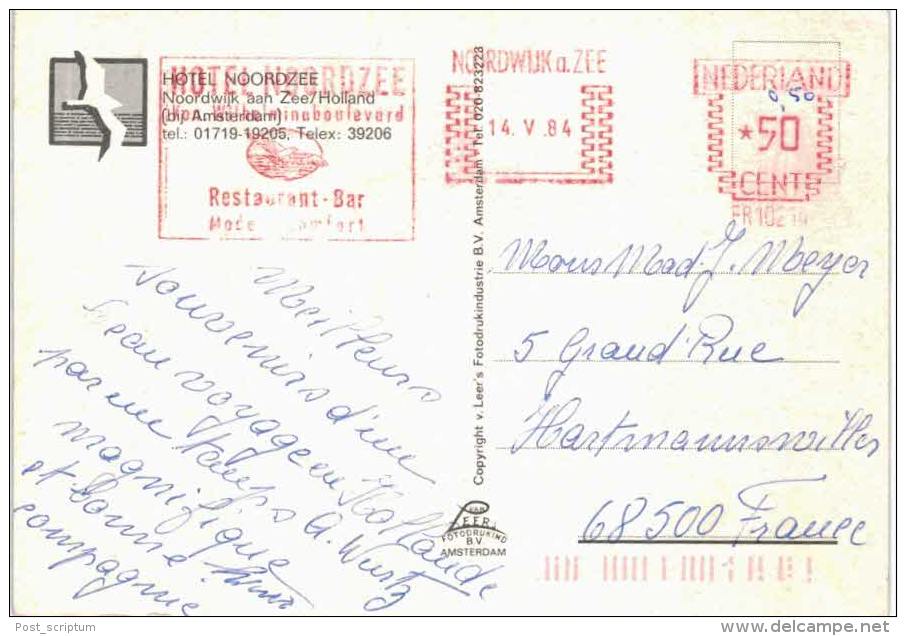 HOTEL NOORDZEE
Noordwijk aan Zee/Holland
(bij Amsterdam)
tel.: 01719-19205, Telex: 39206
HOTEL NOORDZEE
Kon. Wilhelminaboulevard
Restaurant - Bar
NOORDWIJK a. ZEE
14. V. 84
NEDERLAND
0,50
*50
CENT
FR 102
Meilleurs
souvenirs d'un
beau voyage en Hollande
par un temps
magnifique
et bonne
compagnie
A. Wurtz
Copyright v. Leer's Fotodrukindustrie B.V. Amsterdam - Tel. 020-823223
VAN
LEER'S
FOTODRUKIND
B.V.
AMSTERDAM
Mons Mad. J. Meyer
5 Grand'Rue
Hartmannswiller
68500 France
Post_scriptum
delcampe.net